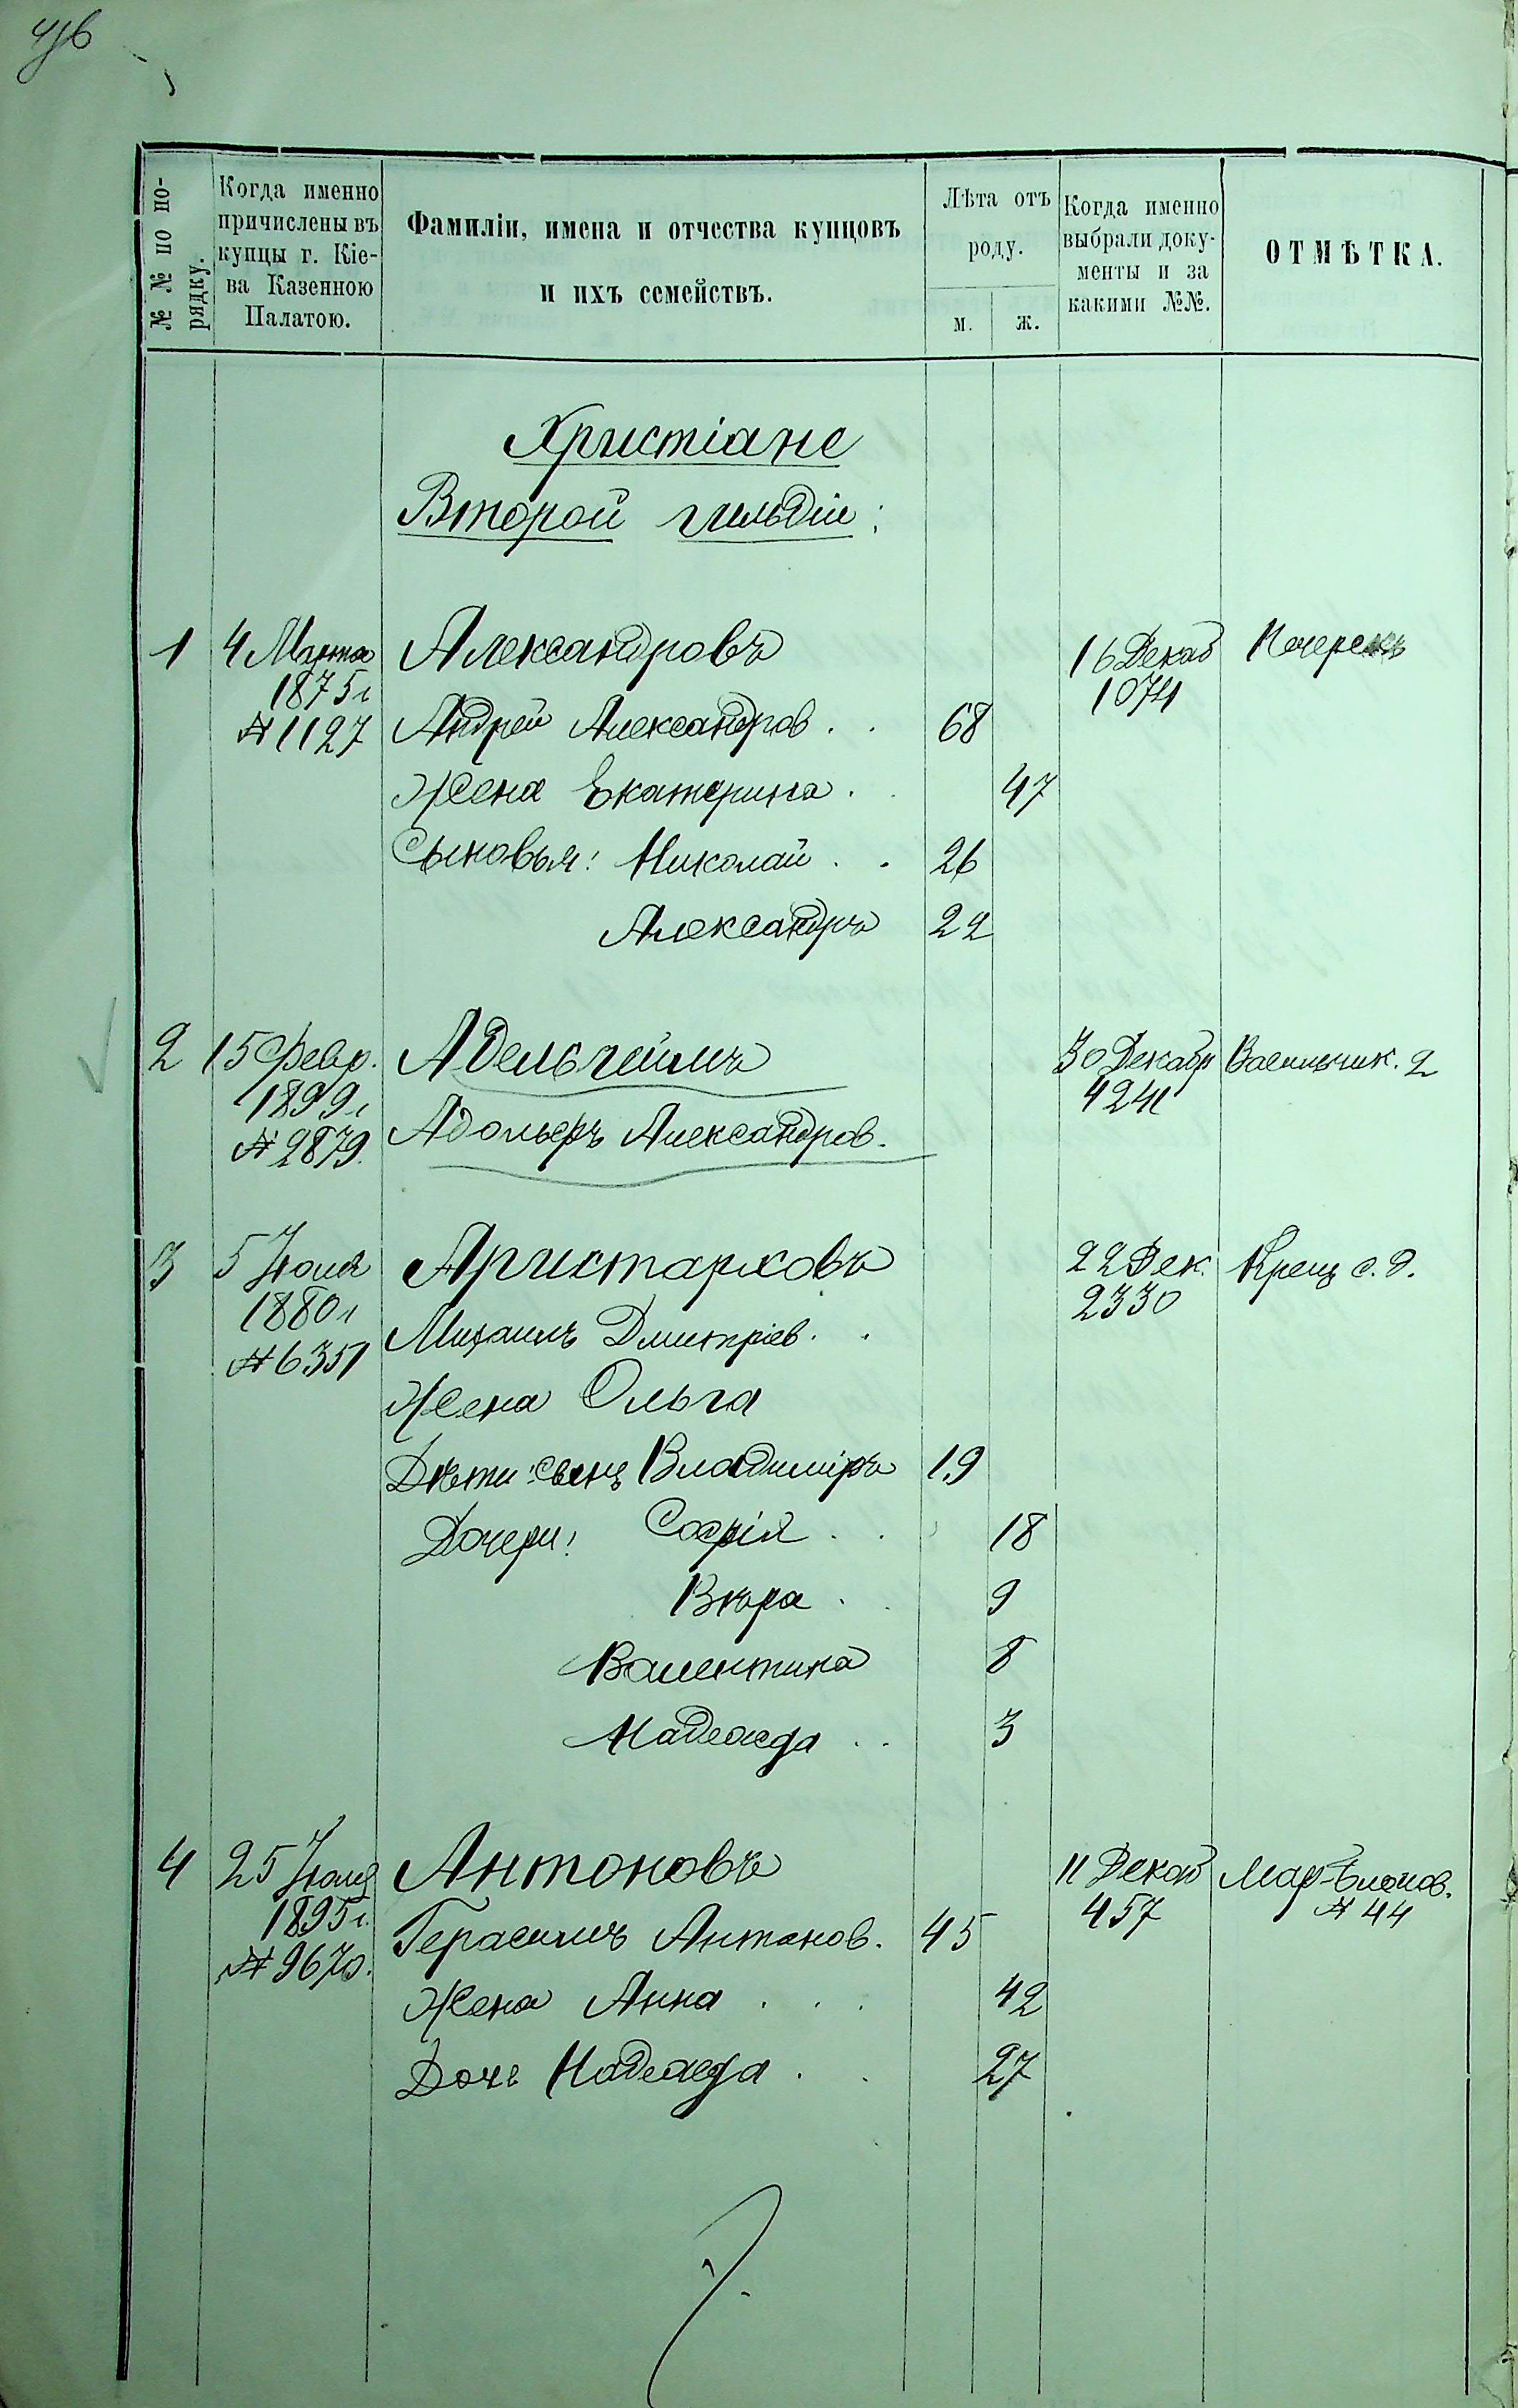 № № по по-
рядку.
Когда именно
причислены въ
купцы г. Кіе-
ва Казенною
Палатою.
Фамиліи, имена и отчества купцовъ
и ихъ семействъ.
Лѣта отъ
роду.
м. ж.
Когда именно
выбрали доку-
менты и за
какими №№.
ОТМѢТКА.
Христіане
Второй гильдіи:
1 4 Марта Александровъ 16 Декаб Печерскъ
1875 г 1074
№ 1127 Андрей Александров. . 68
Жена Екатерина . 47
Сыновья: Николай . . 26
Александръ 22
2 15 Февр. Адельгеймъ 30 Декабр Васильчик. 2
1899 г 4241
№ 2879. Адольфъ Александров.
3 5 Іюля Аристарховъ 22 Дек. Крещ с. д.
1880 г 2330
№ 6351 Михаилъ Дмитріев. .
Жена Ольга
Дѣти: сынъ Владиміръ 19
Дочери: Софія . . 18
Вѣра . . 9
Валентина 8
Надежда . . 3
4 25 Іюля Антоновъ 11 Декаб Мар-Благов.
1895 г. 457 № 44
№ 9670. Герасимъ Антонов. 45
Жена Анна . . . 42
Дочь Надежда . . 27